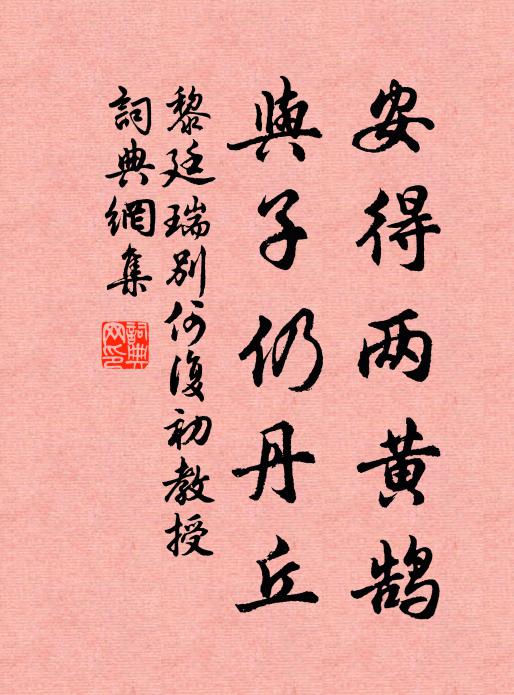 安得两黄鹄
與子仍丹丘
黎廷瑞别何復初教授
詞典網集
詞典网印